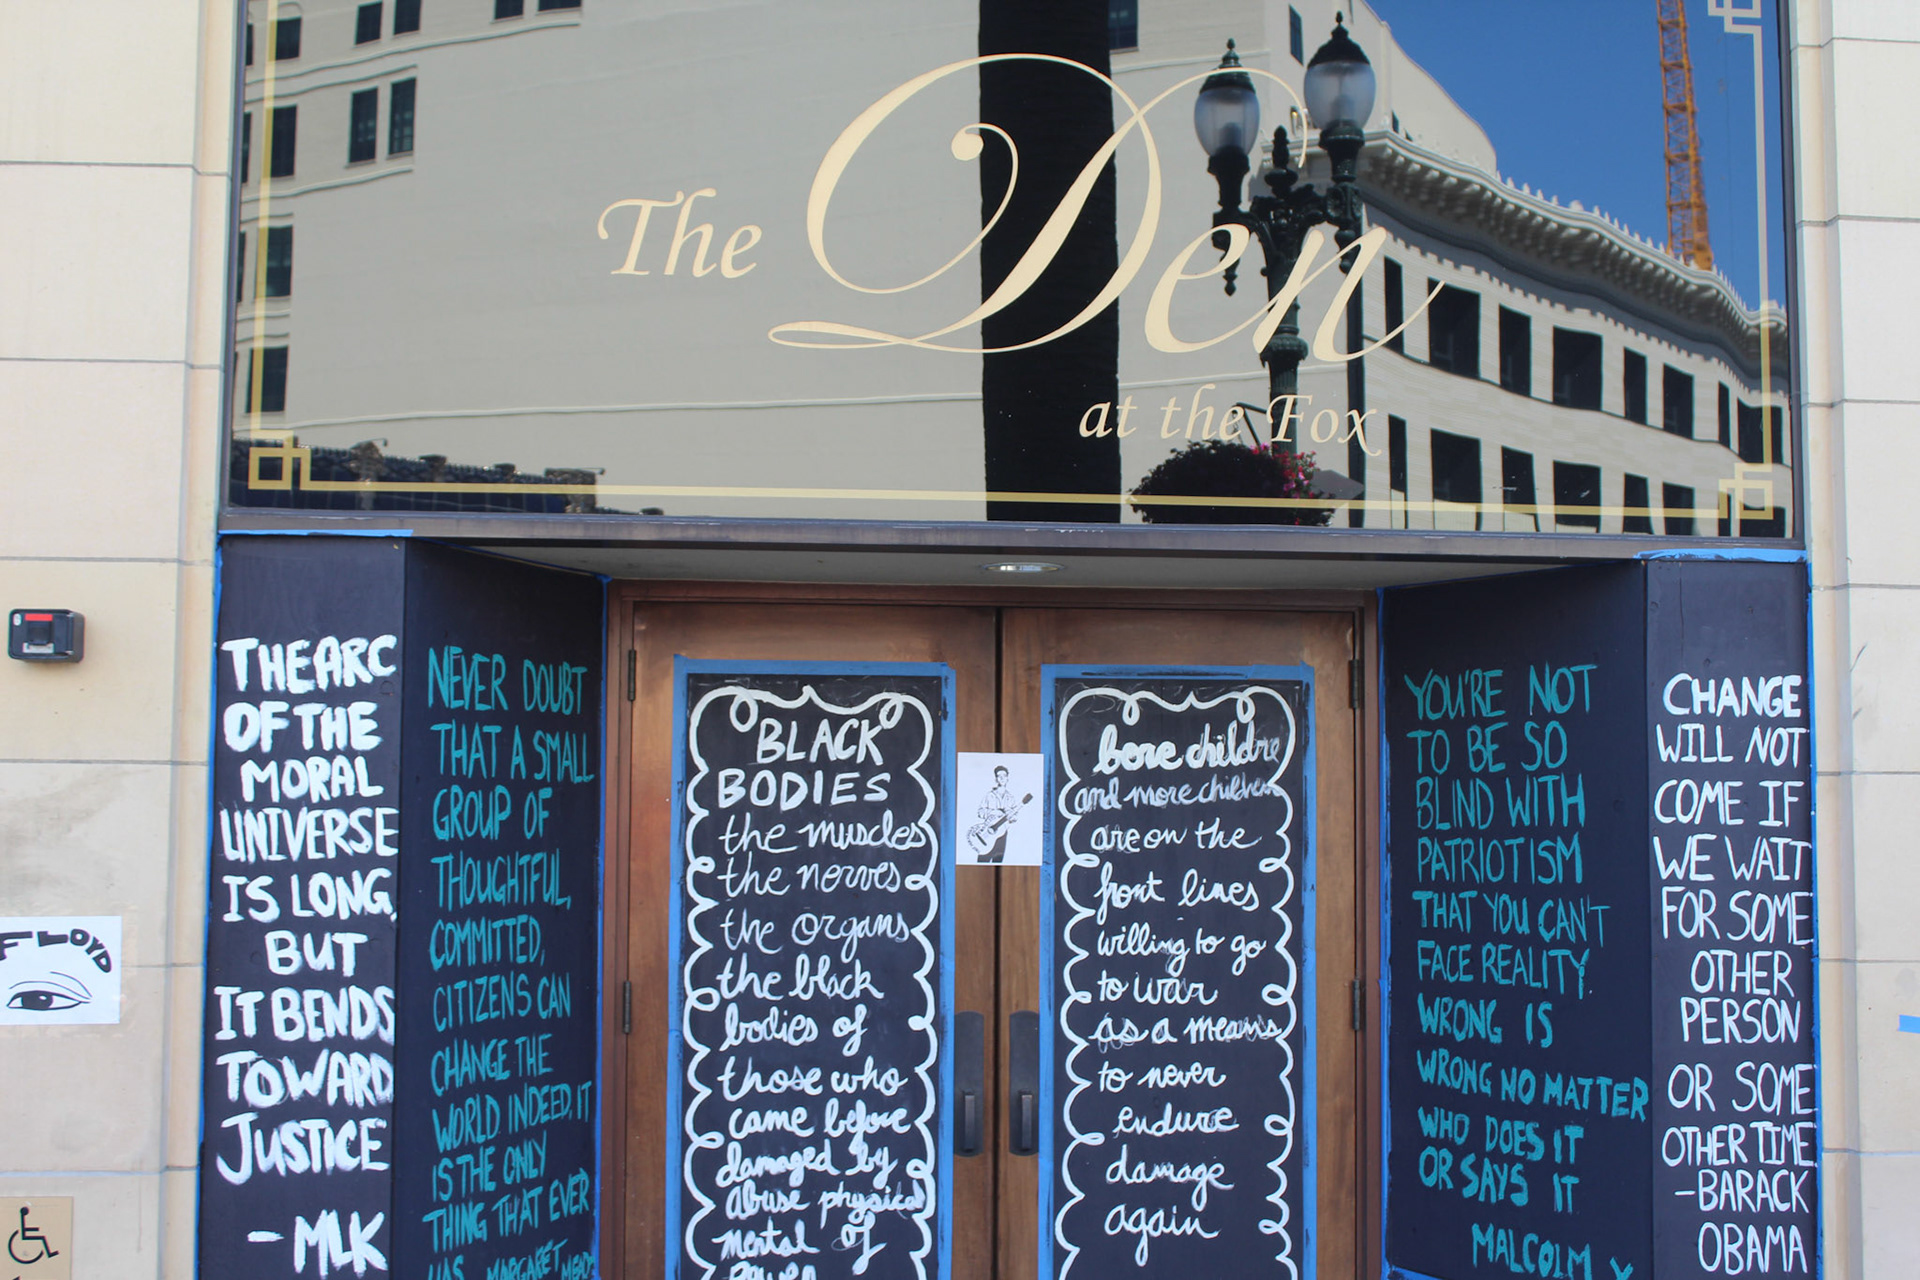 The Den
at the Fox
FLOYD
THE ARC
OF THE
MORAL
UNIVERSE
IS LONG,
BUT
IT BENDS
TOWARD
JUSTICE
- MLK
NEVER DOUBT
THAT A SMALL
GROUP OF
THOUGHTFUL,
COMMITTED,
CITIZENS CAN
CHANGE THE
WORLD INDEED, IT
IS THE ONLY
THING THAT EVER
HAS MARGARET MEAD
BLACK
BODIES
the muscles
the nerves
the organs
the black
bodies of
those who
came before
damaged by
abuse physical
mental of
power
bore childre
and more children
are on the
front lines
willing to go
to war
as a means
to never
endure
damage
again
YOU'RE NOT
TO BE SO
BLIND WITH
PATRIOTISM
THAT YOU CAN'T
FACE REALITY.
WRONG IS
WRONG NO MATTER
WHO DOES IT
OR SAYS IT
MALCOLM X
CHANGE
WILL NOT
COME IF
WE WAIT
FOR SOME
OTHER
PERSON
OR SOME
OTHER TIME
-BARACK
OBAMA